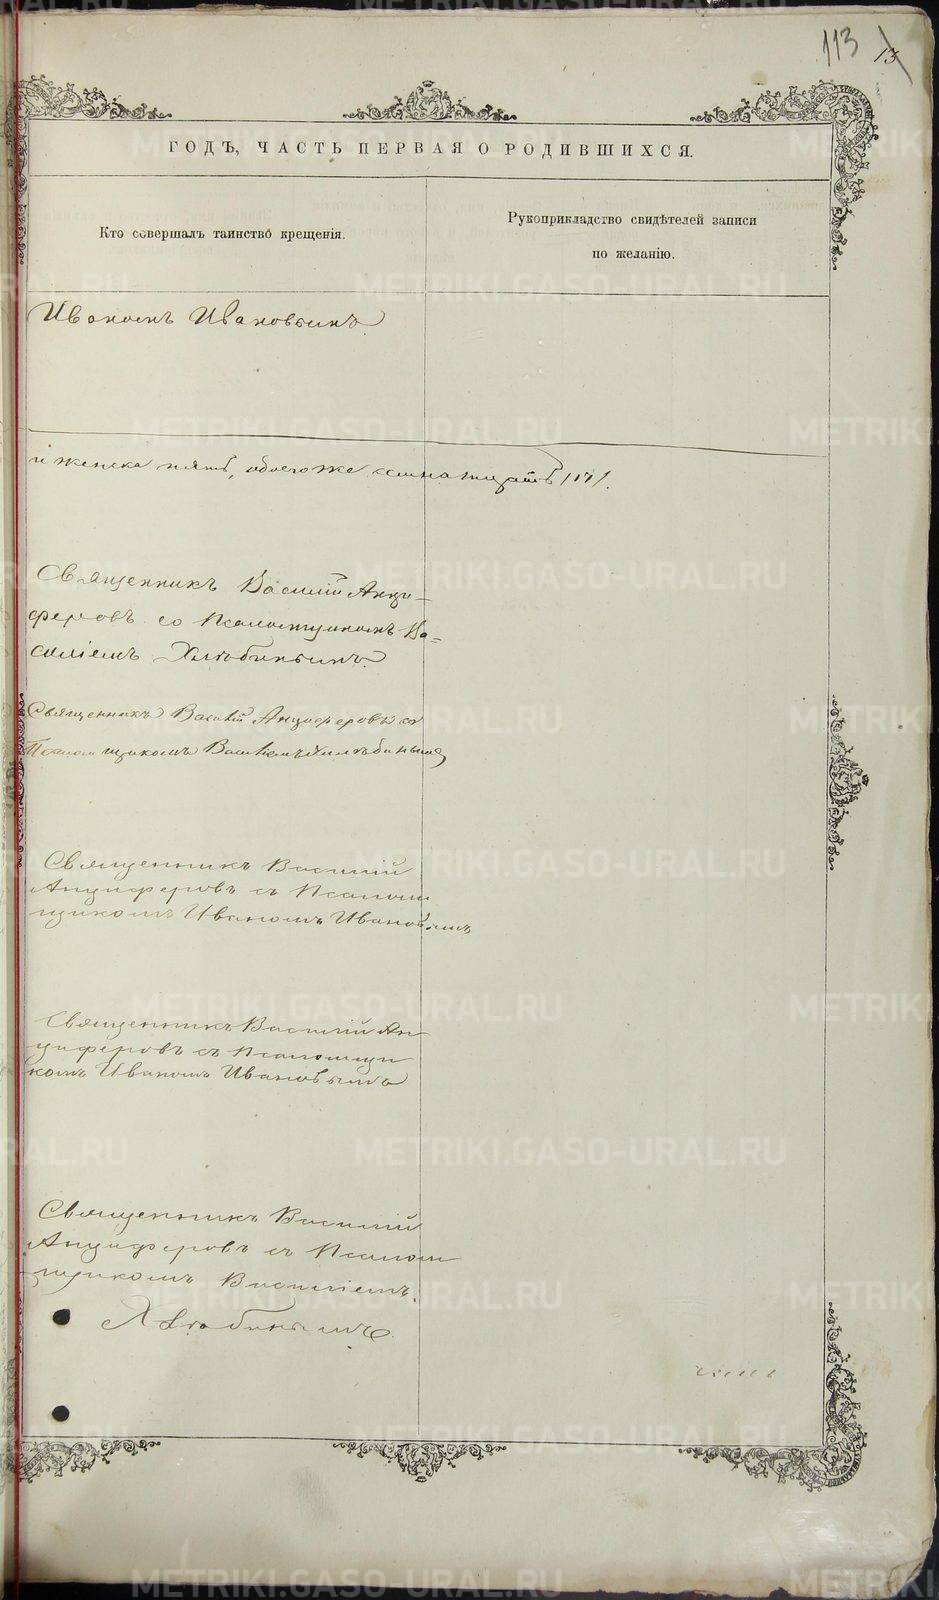 113 13
ГОДЪ, ЧАСТЬ ПЕРВАЯ О РОДИВШИХСЯ.
Кто совершалъ таинство крещенія.
Рукоприкладство свидѣтелей записи
по желанію.
Иваномъ Ивановымъ
и женска пять, обоего же семнатцать /17/.
Священникъ Василій Анци-
феровъ со Псаломщикомъ Ва=
силіемъ Хлѣбинымъ.
Священникъ Василій Анциферовъ съ
Псаломщикомъ Василіемъ Хлѣбинымъ
Священникъ Василій
Анциферовъ съ Псалом
щикомъ Иваномъ Ивановымъ
Священникъ Василій Ан
циферовъ съ Псаломщи
комъ Иваномъ Ивановымъ
Священникъ Василій
Анциферовъ съ Псалом
щикомъ Василіемъ
Хлѣбинымъ.
METRIKI.GASO-URAL.RU